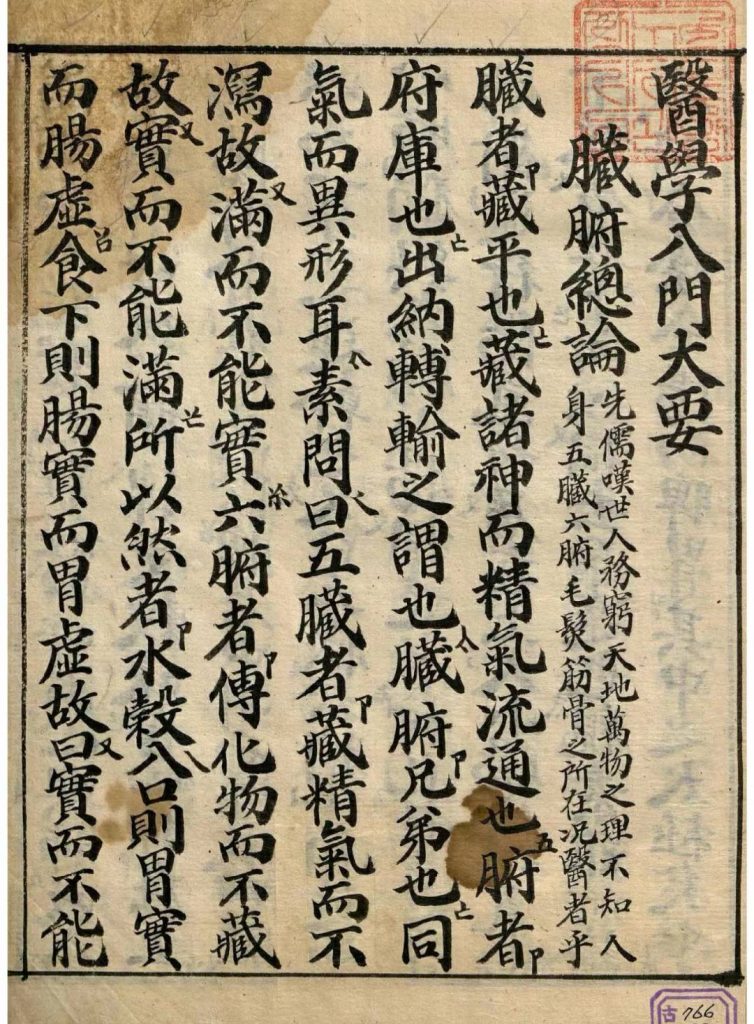 醫學入門大要
臟腑總論 先儒嘆世人務窮天地萬物之理不知人
身五臟六腑毛髮筋骨之所在况醫者乎
臟者藏平也藏諸神而精氣流通也腑者
府庫也出納轉輸之謂也臟腑兄弟也同
氣而異形耳素問曰五臟者藏精氣而不
瀉故滿而不能實六腑者傳化物而不藏
故實而不能滿所以然者水穀入口則胃實
而腸虛食下則腸實而胃虛故曰實而不能
古 766